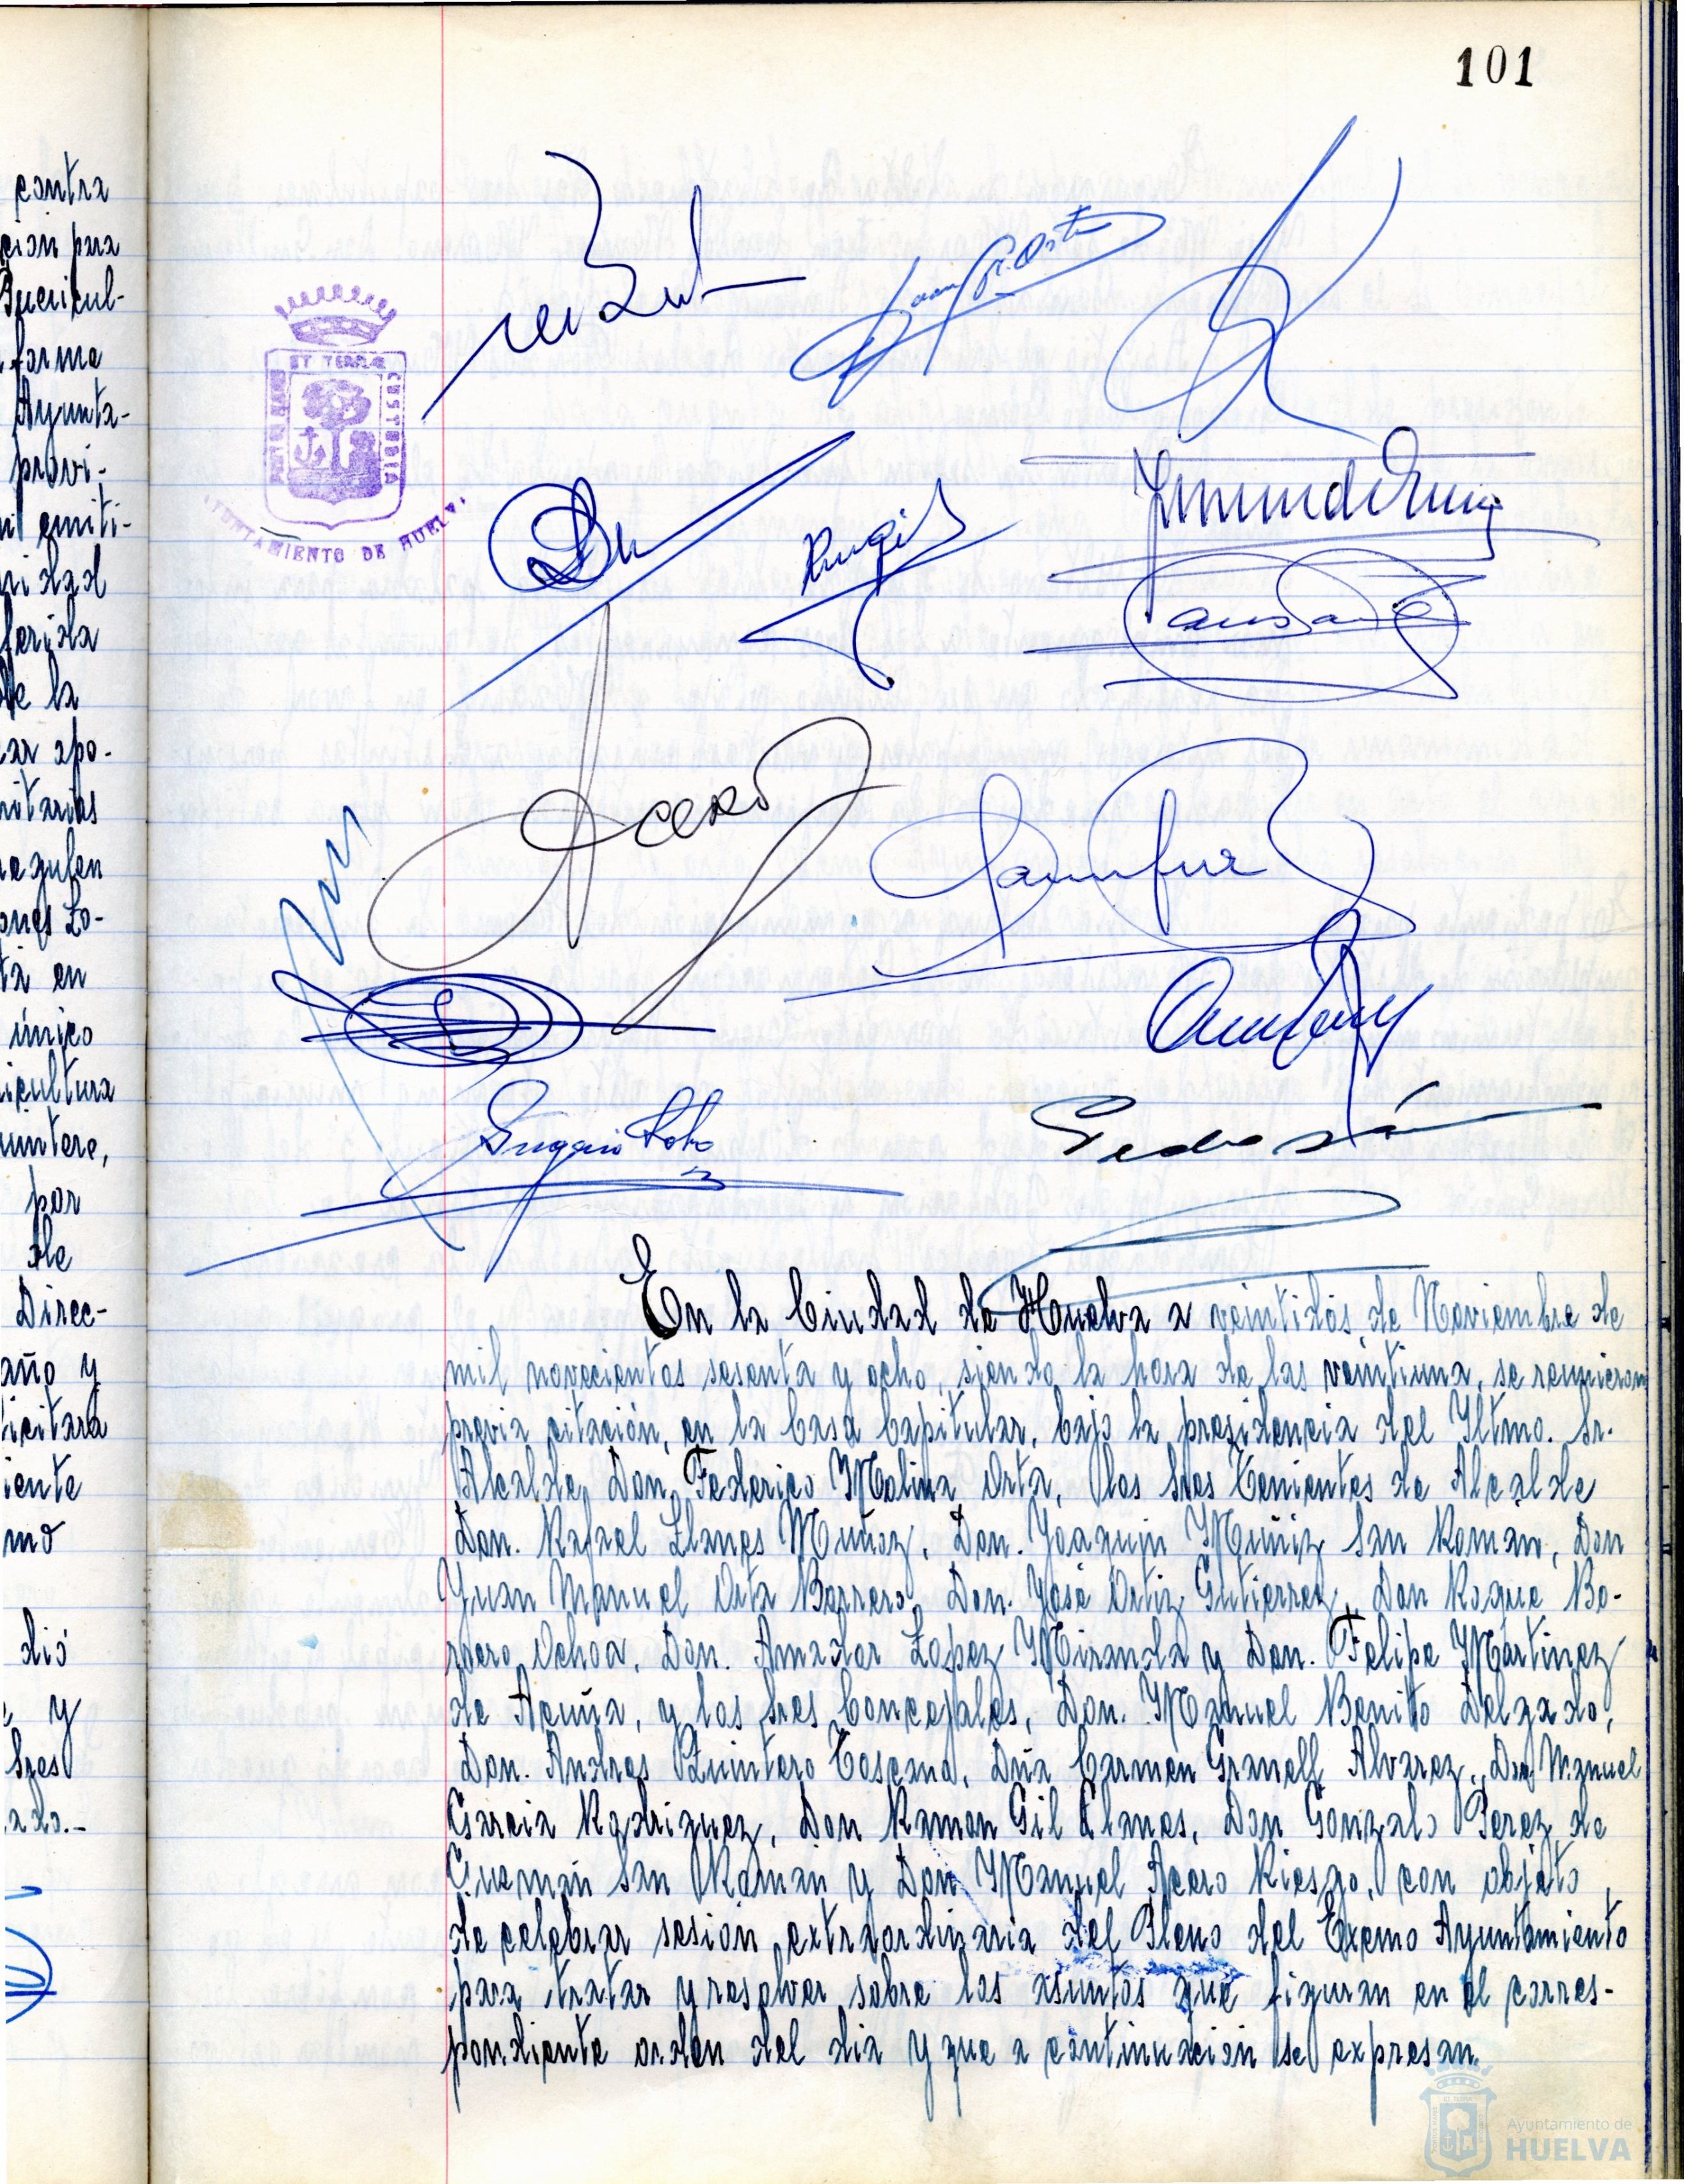 101
contra
ción para
Puericul-
forma
Ayunta-
provi-
emiti-
ridad
ferida
de la
ar apo-
nitarias
regulen
ones Lo-
ta en
único
icultura
uintero,
por
de
Direc-
año y
licitara
iente
mo
dió
y
Sres
ado.-
ET TERRAE
CUSTODIA
AYUNTAMIENTO DE HUELVA
Acero
Eugenio
En la Ciudad de Huelva a veintidós de Noviembre de
mil novecientos sesenta y ocho, siendo la hora de las veintiuna, se reunieron
previa citación, en la Casa Capitular, bajo la presidencia del Yltmo. Sr.
Alcalde, Don Federico Molina Orta, los Sres Tenientes de Alcalde
Don. Rafael Llanes Muñoz, Don. Joaquin Muñiz San Roman, Don
Juan Manuel Orta Borrero, Don. José Ortiz Gutierrez, Don Roque Bo-
rrero Ochoa, Don. Amador Lopez Miranda y Don. Felipe Martinez
de Acuña, y los Sres Concejales, Don. Manuel Benito Delgado,
Don. Andres Quintero Toscano, Dña Carmen Granell Alvarez, Don Manuel
Garcia Rodriguez, Don Ramon Gil Llanes, Don Gonzalo Perez de
Guzmán San Roman y Don Manuel Acero Riesgo, con objeto
de celebrar sesión extraordinaria del Pleno del Excmo Ayuntamiento
para tratar y resolver sobre los asuntos que figuran en el corres-
pondiente orden del dia y que a continuación se expresan.
Ayuntamiento de
HUELVA